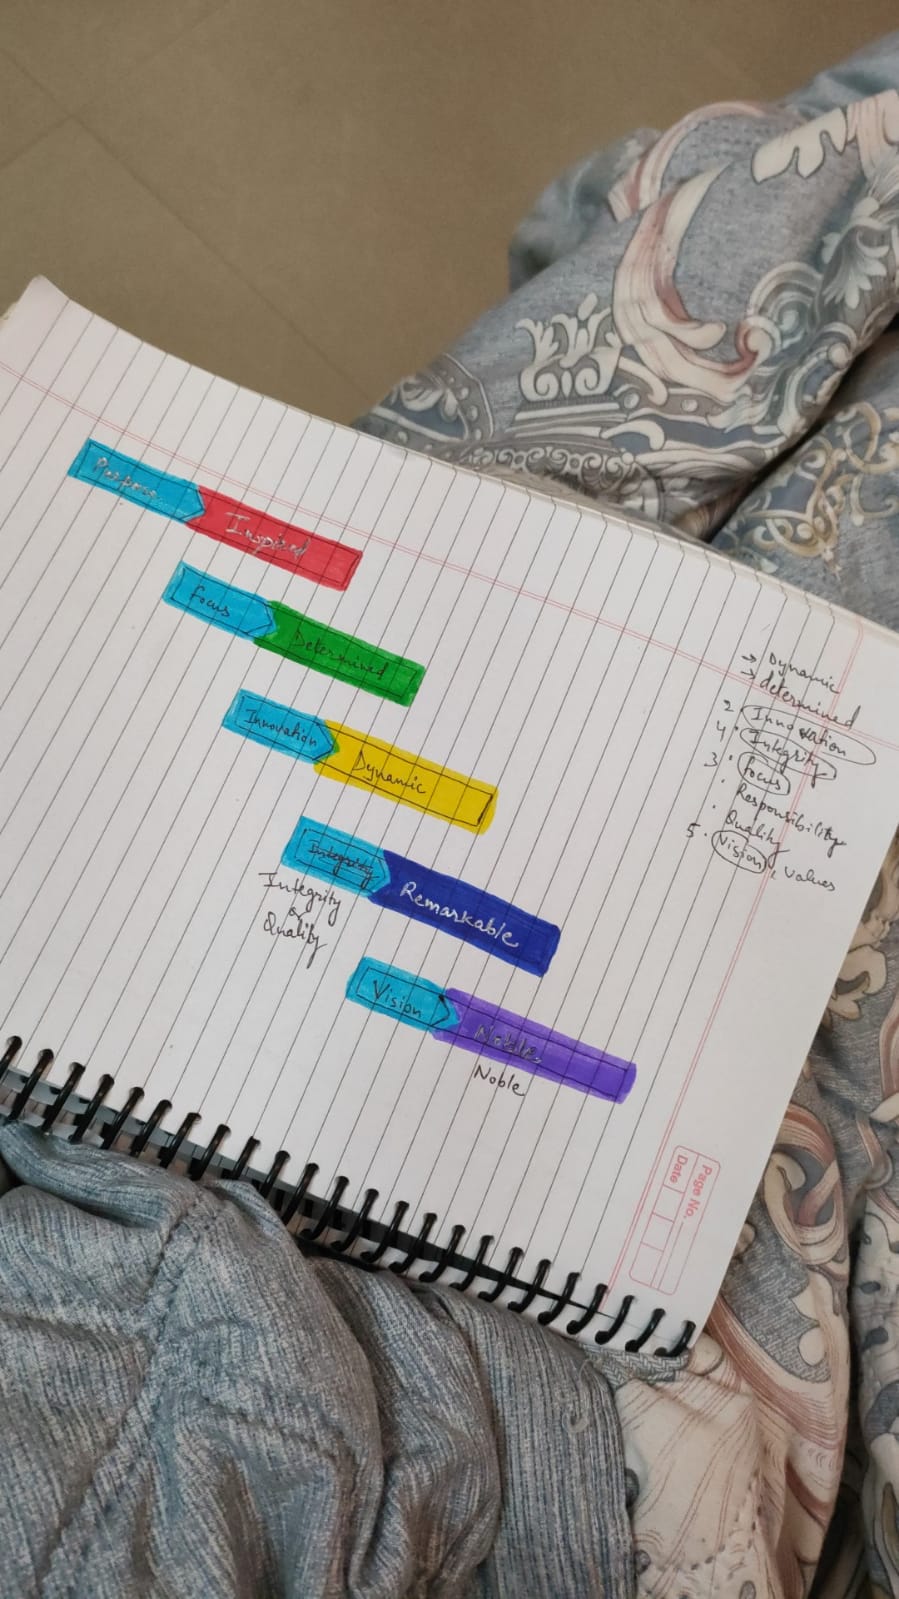 Purpose
Inspired
Focus
Determined
Innovation
Dynamic
Integrity
Integrity
or
Quality
Remarkable
Vision
Noble
Noble
→ Dynamic
→ determined
2 Innovation
4. Integrity
3. focus
. Responsibility
. Quality
5. Vision, values
Page No.
Date